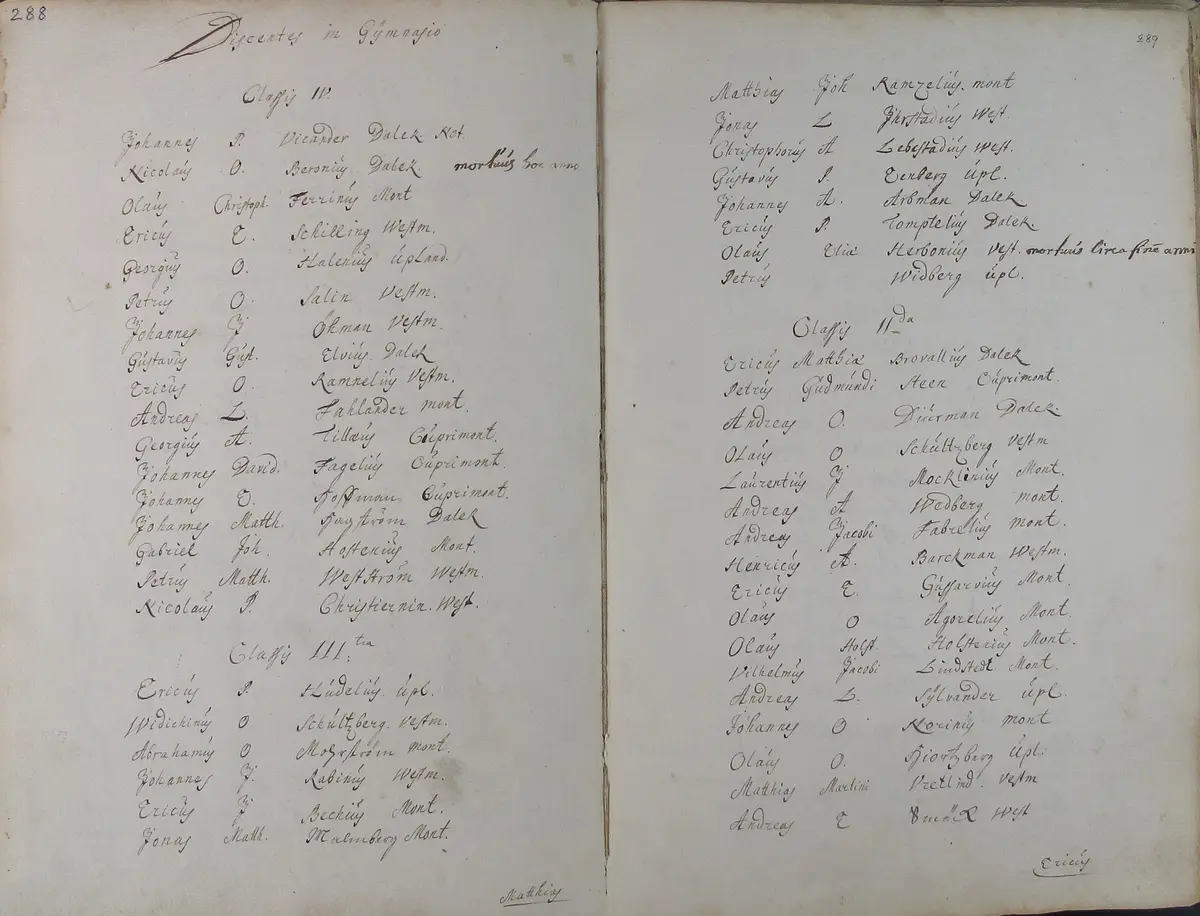 288
Discentes in Gÿmnasio
Classis IV.
Johannes P. Vicander Dalek. Not.
Nicolaús O. Beronius Dalek mortuús hoc anno
Olaús Christoph. Ferrinús Mont
Ericús E. Schilling Westm.
Georgiús O. Haleniús Úpland.
Petrús O. Salin Vestm.
Johannes J Öhman Vestm.
Gústavús Gúst. Elviús. Dalek
Ericús O. Ramneliús Vestm.
Andreas L. Fahlander mont.
Georgiús A. Tillæús Cúprimont.
Johannes David. Fageliús Cúprimont.
Johannes E. Hoffman Cúprimont.
Johannes Matth. Hagström Dalek
Gabriel Joh. Hosteniús Mont.
Petrús Matth. Westström Westm.
Nicolaús P. Christiernin. West.
Classis III.tia
Ericús P. Húdeliús. úpl.
Widichinús O Schúltzberg. Vestm.
Abrahamús O Mohrström mont.
Johannes J. Rabiniús Westm.
Ericús J Bechiús Mont.
Jonas Matth. Malmberg Mont.
Matthias
289
Matthias Joh Ramzeliús. mont
Jonas L Ihrstadiús West.
Christophorús A Lebestadiús West.
Gústavús P. Eenberg úpl.
Johannes A. Arbman Dalek
Ericús P. Tompteliús Dalek.
Olaús Eliæ Herboniús Vest. mortuús circa finē anni
Petrús Widberg úpl.
Classis II da
Ericús Matthiæ Brovalliús Dalek
Petrús Gúdmúndi Steen Cúprimont.
Andreas O. Diúrman Dalek
Olaús O Schúltzberg Vestm
Laurentiús J Mockleniús Mont.
Andreas A Wedberg mont.
Andreas Jacobi Fabreliús mont.
Henricús A. Barckman Westm.
Ericús E. Gússarviús Mont.
Olaús O Agoreliús Mont.
Olaús Holst. Holsteriús Mont.
Vilhelmús Jacobi Lindstedt Mont.
Andreas L. Sÿlvander úpl.
Johannes O Noriniús mont
Olaús O. Hiortzberg úpl.
Matthias Martini Vretlind. Vestm
Andreas E Smöck West
Ericús